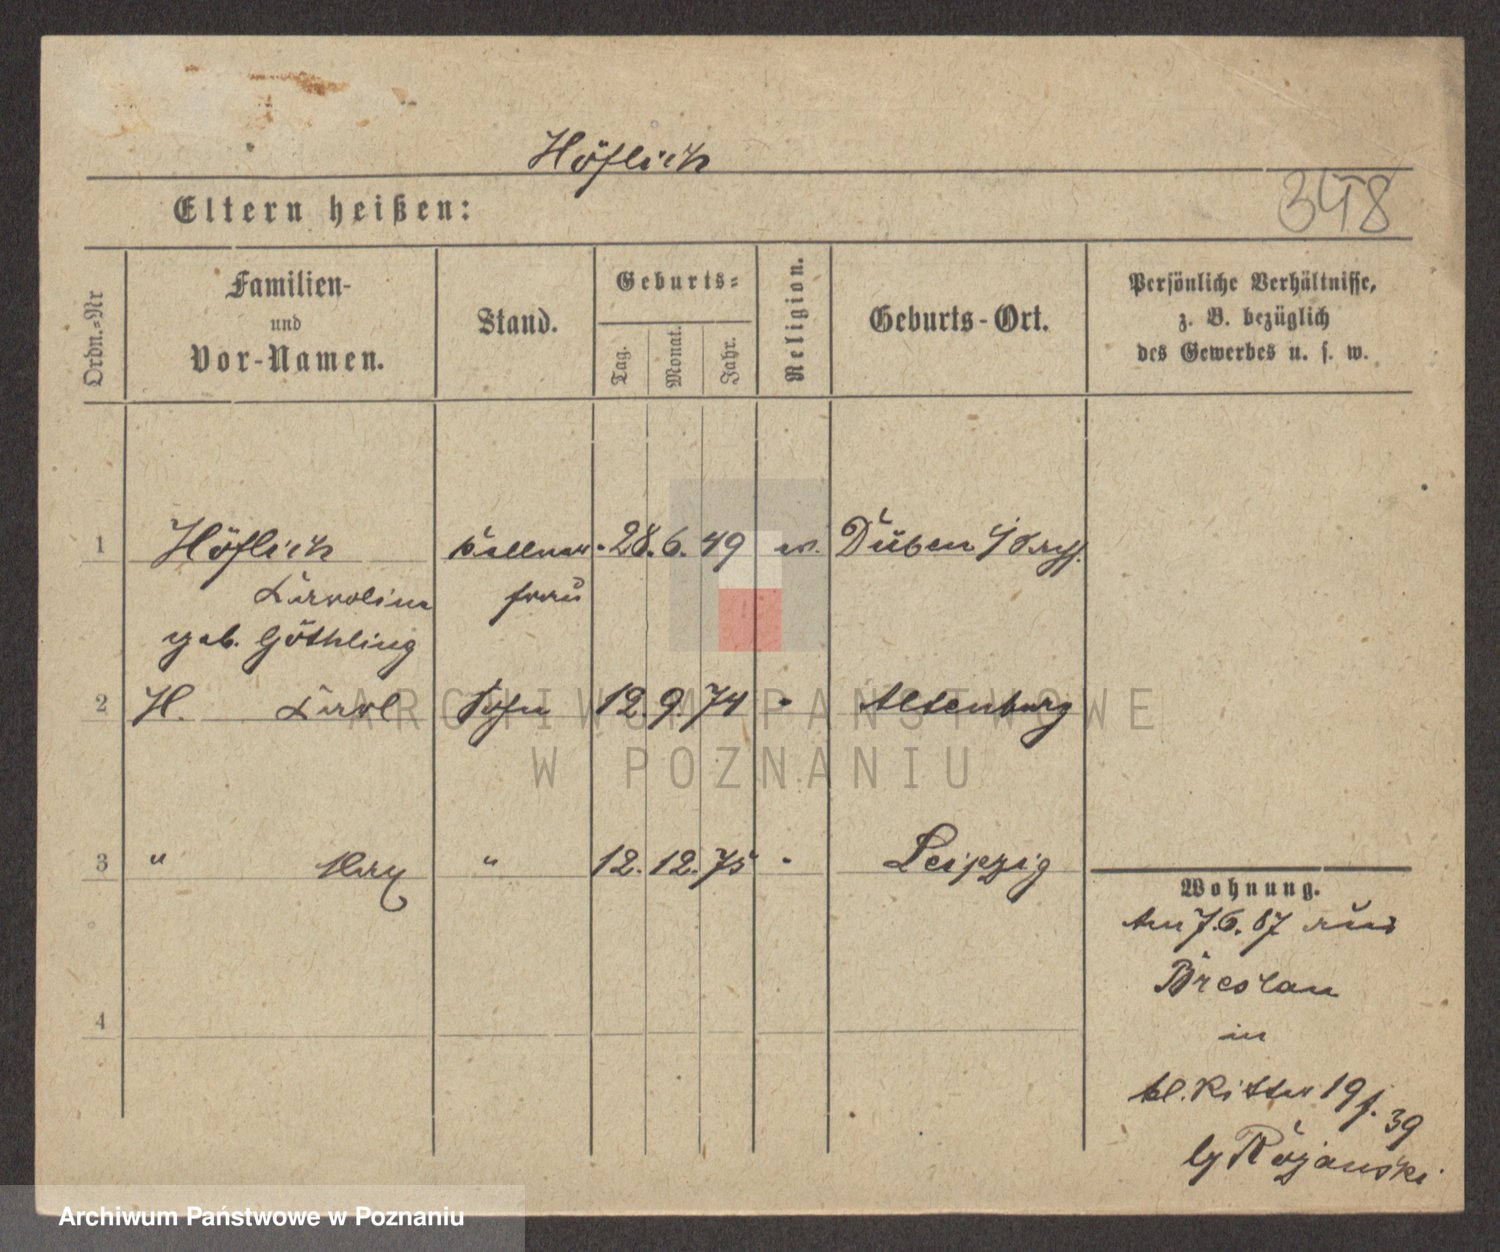 Höflich
Eltern heißen:
348
Ordn.=Nr
Familien-
und
Vor-Namen.
Stand.
Geburts=
Tag.
Monat.
Jahr.
Religion.
Geburts-Ort.
Persönliche Verhältnisse,
z. B. bezüglich
des Gewerbes u. s. w.
1 Höflich Kellner- 28. 6. 49 ev. Düben
Karoline frau
geb. Göthling
2 H. Karl Sohn 12. 9. 74 " Altenburg
3 " Max " 12. 12. 75 " Leipzig
4
Wohnung.
Am 7.6.87 aus
Breslau
in
kl. Ritter 19 f. 39
Rózanski
ARCHIWUM PAŃSTWOWE
W POZNANIU
Archiwum Państwowe w Poznaniu